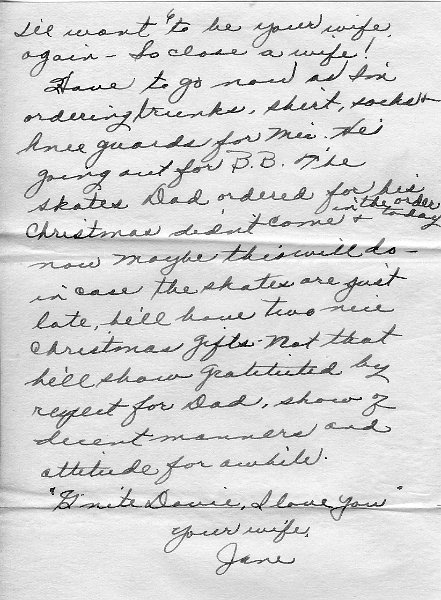 I'll want to be your wife
again - So close a wife!
Have to go now as I'm
ordering trunks, shirt, socks +
knee guards for Mic. He's
going out for B.B. The
skates Dad ordered for his
Christmas didn't come + in the order today
now maybe this will do -
in case the skates are just
late, he'll have two nice
Christmas gifts. Not that
he'll show gratituted by
respect for Dad, show of
decent manners and
attitude for awhile.
"G'nite Davie, I love you"
Your wife,
Jane